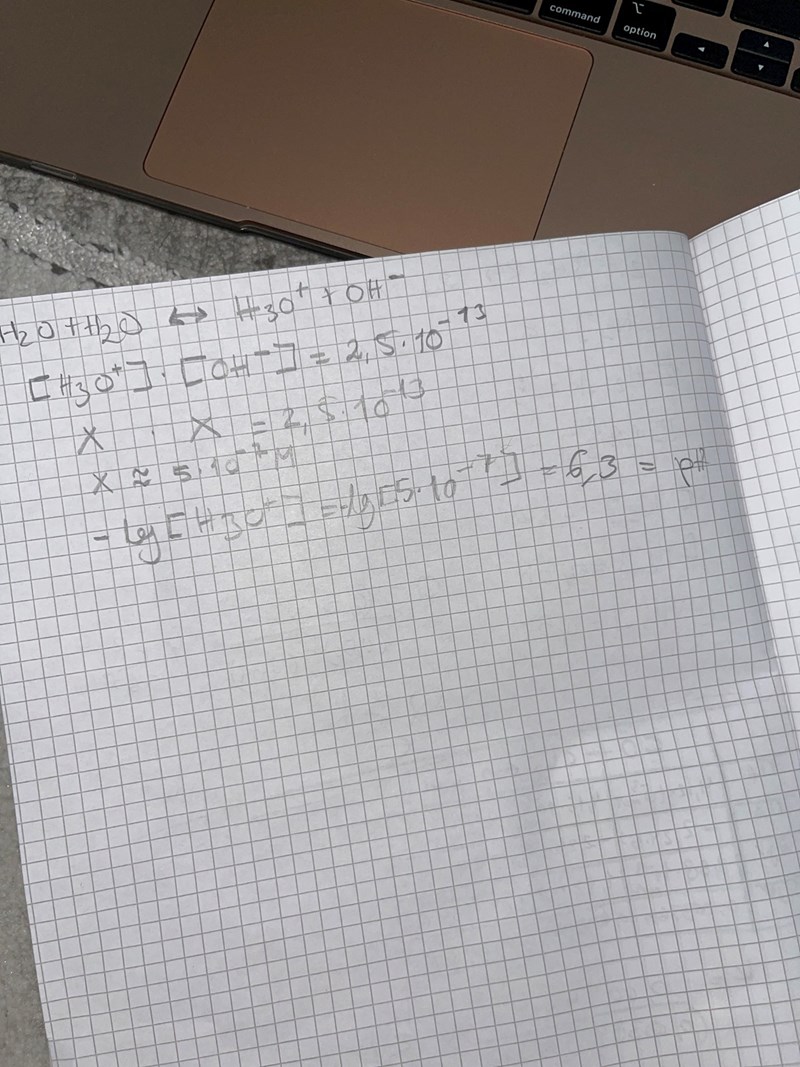 command
option
H2O + H2O ↔ H3O⁺ + OH⁻
[H3O⁺] · [OH⁻] = 2,5 · 10⁻¹³
X · X = 2,5 · 10⁻¹³
X ≈ 5 · 10⁻⁷ M
- lg [H3O⁺] = -lg [5 · 10⁻⁷] = 6,3 = pH